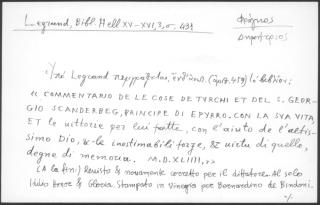 Legrand, Bibl. Hell XV-XVI, 3, σ. 431
Φράγκος
Δημητρεριος
Ὑπὸ Legrand περιγράφεται,
« COMMENTARIO DE LE COSE DE TVRCHI ET DEL S. GEOR-
GIO SCANDERBEG, PRINCIPE DI EPYRRO. CON LA SVA VITA,
ET le vittorie per lui fatte, con l'aiuto de l'altis-
simo Dio, & le inestimabili forze, & virtu di quello,
degne di memoria. M.D.XLIIII, »
(A la fin:) Revisto & novamente corretto per il dittatore. Al solo
Iddio Honore & Gloria. Stampato in Vinegia per Bernardino de Bindoni.
./.